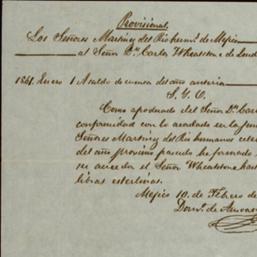 Provisional.
Los Señores Martinez del Rio herm.s de Mejico
al Señor Dn. Carlos Wheatstone de Lond
1861. Enero 1 A saldo de cuenta del año anterio
S. Y. O.
Como apoderado del Señor Dn. Carl
conformidad con lo acordado en la Jun
Señores Martinez del Rio hermanos
del año proximo pasado he formado
su acreedor el Señor Wheatstone has
libras esterlinas.
Mejico 10 de Febrero de